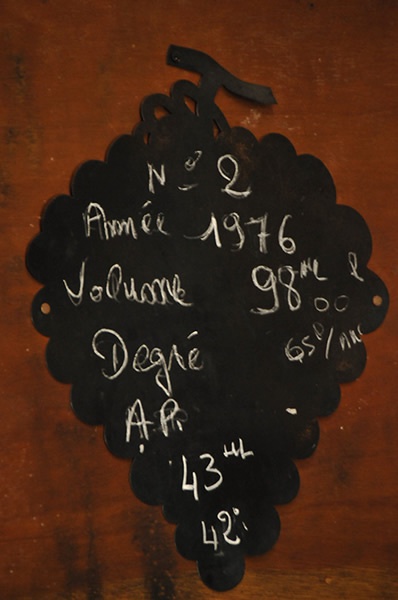 N° 2
Année 1976
Volume 98 HL 00 l
Degré 65°/AN
A.P.
43 HL
42°